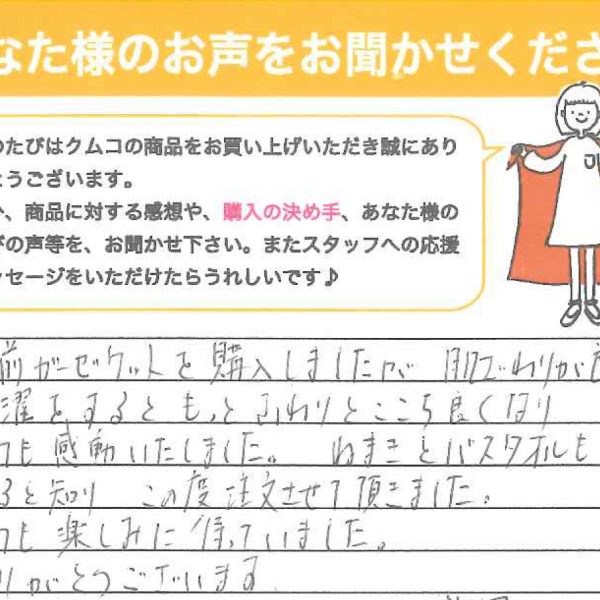 なた様のお声をお聞かせくださ
のたびはクムコの商品をお買い上げいただき誠にあり
とうございます。
、商品に対する感想や、購入の決め手、あなた様の
の声等を、お聞かせ下さい。またスタッフへの応援
ッセージをいただけたらうれしいです♪
前ガーゼケットを購入しましたが 肌ざわりが
濯をするともっとふわりとここち良くなり
も感動いたしました。 ねまきとバスタオルも
ると知り この度注文させて頂きました。
も楽しみに待っていました。
りがとうございます